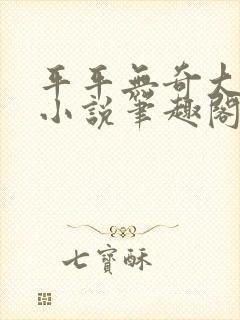 平平無奇大
小說筆趣閣
七寶酥